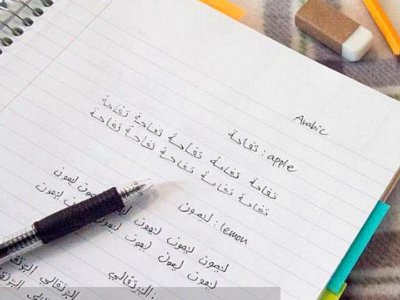 Arabic
تفاحة : apple
تفاحة تفاحة تفاحة تفاحة تفاحة
تفاحة تفاحة تفاحة تفاحة تفاحة
ليمون : lemon
ليمون ليمون ليمون ليمون ليمون
ليمون ليمون ليمون ليمون
البرتقالي
البرتقالي البرتقالي